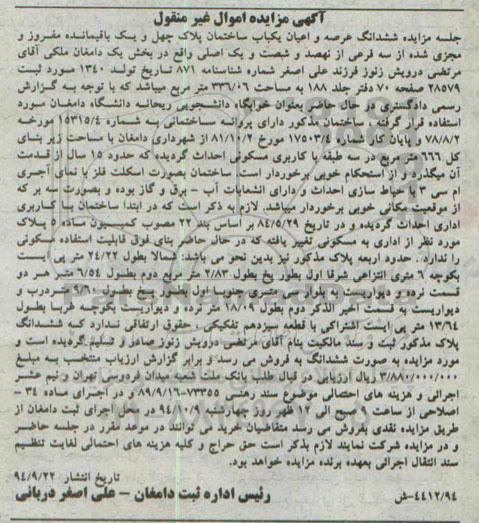 آگهی مزایده اموال غیر منقول
جلسه مزایده ششدانگ عرصه و اعیان یکباب ساختمان پلاک چهل و یک باقیمانده مفروز و
مجزی شده از سه فرعی از نهصد و شصت و یک اصلی واقع در بخش یک دامغان ملکی آقای
مرتضی درویش زنوز فرزند علی اصغر شماره شناسنامه ۸۷۱ تاریخ تولد ۱۳۴۰ مورد ثبت
۲۸۵۷۹ صفحه ۷۰ دفتر جلد ۱۸۸ به مساحت ۳۳۶/۰۶ متر مربع میباشد که با توجه به گزارش
رسمی دادگستری در حال حاضر بعنوان خوابگاه دانشجویی ریحانه دانشگاه دامغان مورد
استفاده قرار گرفته. ساختمان مذکور دارای پروانه ساختمانی به شماره ۱۵۳۱۵/۴ مورخه
۷۸/۸/۲ و پایان کار شماره ۱۷۵۰۳/۴ مورخ ۸۱/۱۰/۲ از شهرداری دامغان با مساحت زیر بنای
کل ۶۶۶ متر مربع در سه طبقه با کاربری مسکونی احداث گردیده که حدود ۱۵ سال از قدمت
آن میگذرد و از استحکام خوبی برخوردار است. ساختمان بصورت اسکلت فلز با نمای آجری
ام سی ۳ با حیاط سازی احداث و دارای انشعابات آب - برق و گاز بوده و بصورت سه بر که
از موقعیت مکانی خوبی برخوردار میباشد. لازم به ذکر است که در ابتدا ساختمان با کاربری
اداری احداث گردیده و در تاریخ ۸۴/۵/۲۹ بر اساس بند ۲ مصوب کمیسیون ماده ۵ پلاک
مورد نظر از اداری به مسکونی تغییر یافته که در حال حاضر بنای فوق قابلیت استفاده مسکونی
را ندارد. حدود اربعه پلاک مذکور نیز بدین نحو می باشد: شمالا بطول ۲۴/۲۲ متر پی ایست
بکوچه ۶ متری التزاعی شرقا اول بطور پخ بطول ۲/۸۳ متر مربع دوم بطول ۶/۵۴ متر هر دو
قسمت نرده و دیواریست به بلوار متری جنوبا اول بطور پخ بطول ۹/۶۰ متر درب و
دیواریست به قسمت اخیر الذکر دوم بطول ۱۸/۰۹ متر نرده و دیواریست بکوچه غربا بطول
۱۳/۶۴ متر پی ایست اشتراکی با قطعه سیزدهم تفکیکی. حقوق ارتفاقی ندارد که ششدانگ
پلاک مذکور ثبت و سند مالکیت بنام آقای مرتضی درویش زنوز صادر و تسلیم گردیده است و
مورد مزایده به صورت ششدانگ به فروش می رسد و برابر گزارش ارزیاب منتخب به مبلغ
۳/۸۸۰/۰۰۰/۰۰۰ ریال ارزیابی در قبال طلب بانک ملت شعبه میدان فردوسی تهران و نیم عشر
اجرائی و هزینه های احتمالی موضوع سند رهنی ۷۳۳۵۵-۸۹/۹/۱۶ و در اجرای ماده ۳۴ -
اصلاحی از ساعت ۹ صبح الی ۱۲ ظهر روز چهارشنبه ۹۴/۱۰/۹ در محل اجرای ثبت دامغان از
طریق مزایده نقدی بفروش می رسد متقاضیان خرید می توانند در موعد مقرر در جلسه حاضر
و در مزایده شرکت نمایند لازم بذکر است حق حراج و کلیه هزینه های احتمالی لغایت تنظیم
سند انتقال اجرائی بعهده برنده مزایده خواهد بود.
تاریخ انتشار ۹۴/۹/۲۲
۴۴۱۲/۹۴-ش رئیس اداره ثبت دامغان - علی اصغر دربانی